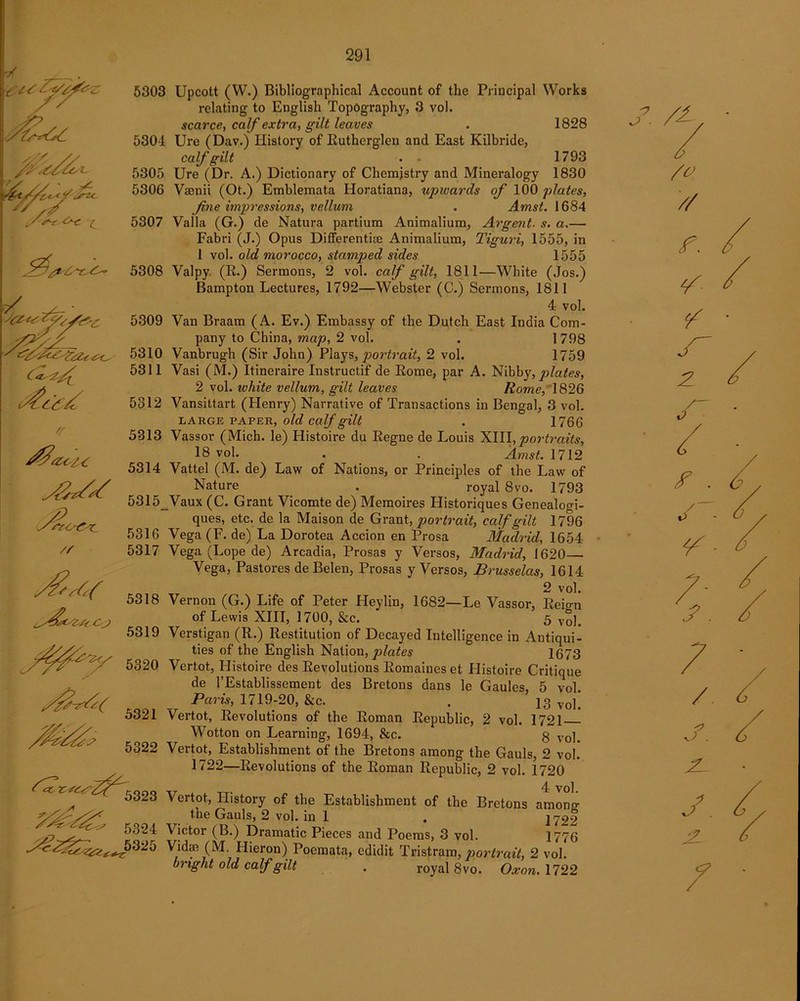 291
5303 Upcott (W.) Bibliographical Account of the Principal Works
relating to English Topography, 3 vol.
scarce, calf extra, gilt leaves . 1828
5304 Ure (Dav.) History of Rutherglen and East Kilbride,
calf gilt . . 1793
5305 Ure (Dr. A.) Dictionary of Chemistry and Mineralogy 1830
5306 Vænii (Ot.) Emblemata Horatiana, upwards of 100 plates,
fine impressions, vellum . Amst. 1684
5307 Valla (G.) de Natura partium Animalium, Argent. s. a.—
Fabri (J.) Opus Differentiæ Animalium, Tiguri, 1555, in
1 vol. old morocco, stamped sides 1555
5308 Valpy (R.) Sermons, 2 vol. calf gilt, 1811—White (Jos.)
Bampton Lectures, 1792—Webster (C.) Sermons, 1811
4 vol.
5309 Van Braam (A. Ev.) Embassy of the Dutch East India Com-
pany to China, map, 2 vol. . 1798
5310 Vanbrugh (Sir John) Plays, portrait, 2 vol. 1759
5311 Vasi (M.) Itineraire Instructif de Rome, par A. Nibby, plates,
2 vol. white vellum, gilt leaves Rome, 1826
5312 Vansittart (Henry) Narrative of Transactions in Bengal, 3 vol.
LARGE PAPER, old calf gilt . 1766
5313 Vassor (Mich. le) Histoire du Regne de Louis XIII, portraits,
18 vol. . . Amst. 1712
5314 Vattel (M. de) Law of Nations, or Principles of the Law of
Nature . royal 8vo. 1793
5315 Vaux (C. Grant Vicomte de) Memoires Historiques Genealogi-
ques, etc. de la Maison de Grant, portrait, calf gilt 1796
5316 Vega (F. de) La Dorotea Accion en Prosa Madrid, 1654
5317 Vega (Lope de) Arcadia, Prosas y Versos, Madrid, 1620—
Vega, Pastores de Belen, Prosas y Versos, Brusselas, 1614
2 vol.
5318 Vernon (G.) Life of Peter Heylin, 1682—Le Vassor, Reign
of Lewis XIII, 1700, &c. 5 vol.
5319 Verstigan (R.) Restitution of Decayed Intelligence in Antiqui-
ties of the English Nation, plates 1673
5320 Vertot, Histoire des Revolutions Romaines et Histoire Critique
de l'Etablissement des Bretons dans le Gaules, 5 vol.
Paris, 1719-20, &c. . 13 vol.
5321 Vertot, Revolutions of the Roman Republic, 2 vol. 1721—
Wotton on Learning, 1694, &c. 8 vol.
5322 Vertot, Establishment of the Bretons among the Gauls, 2 vol.
1722—Revolutions of the Roman Republic, 2 vol. 1720
4 vol.
5323 Vertot, History of the Establishment of the Bretons among
the Gauls, 2 vol. in 1 . 1722
5324 Victor (B.) Dramatic Pieces and Poems, 3 vol. 1776
5325 Vidæ (M. Hieron) Poemata, edidit Tristram, portrait, 2 vol.
bright old calf gilt . royal 8vo. Oxon. 1722